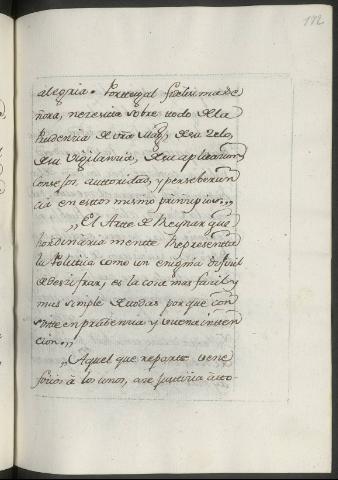 172
alegria. Portugal fidelisima Se
ñora, necesita sobre todo dela
Prudenzia de vra Mag, desu Zelo,
desu Vigilanzia, desu aplicazion,
Consejos, autoridad, y perseberan
cia en estos mismo prinzipios.,,
,, El Arte de Reynar que
hordinaria mente Representa
la Politica como un enigma difizil
de deszifrar, es la cosa mas fazil y
mas simple de todas porque con
siste en prudencia y buena inten
cion.,,
,, Aquel que reparte vene
ficios à los unos, aze justizia à to-